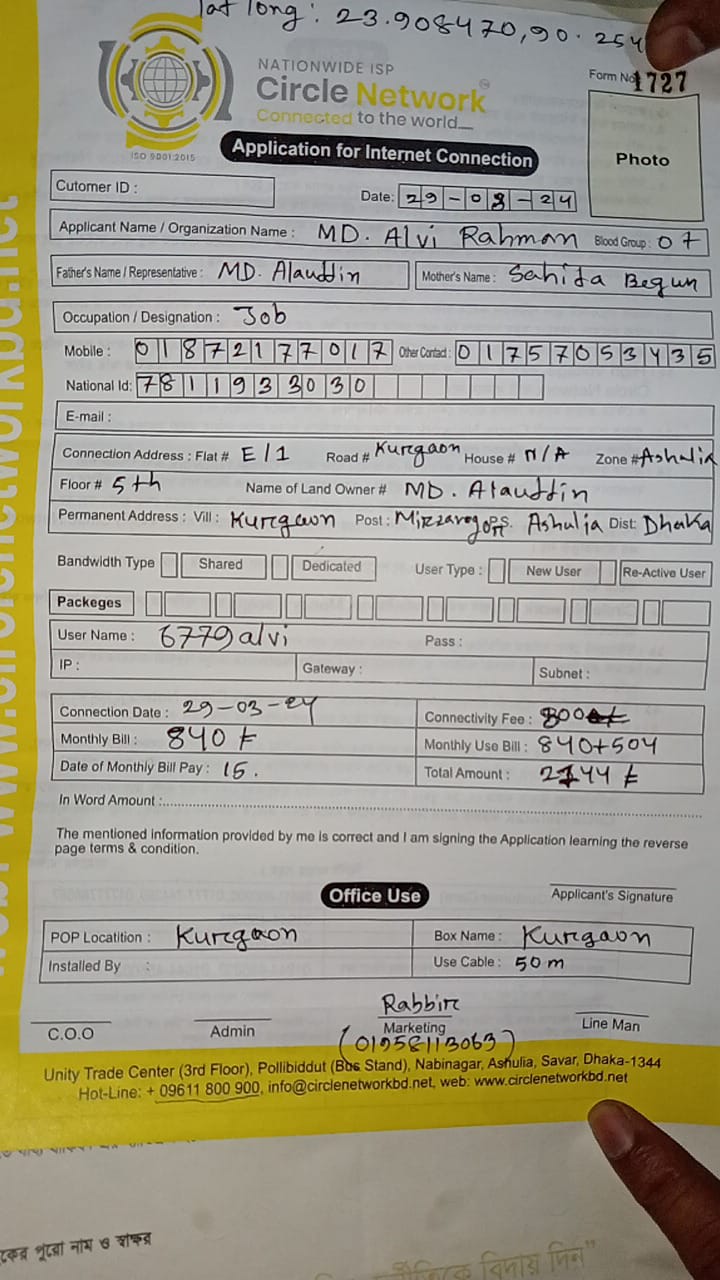 lat long: 23.908470,90.254
NATIONWIDE ISP
Circle Network
Connected to the world....
ISO 9001:2015
Form No 1727
Application for Internet Connection
Photo
Cutomer ID :
Date: 29-08-24
Applicant Name / Organization Name : MD. Alvi Rahman Blood Group : O+
Father's Name / Representative : MD. Alauddin Mother's Name : Sahida Begun
Occupation / Designation : Job
Mobile : 01872177017 Other Contact : 01757053435
National Id: 7811933030
E-mail :
Connection Address : Flat # E/1 Road # Kurgaon House # N/A Zone # Ashulia
Floor # 5th Name of Land Owner # MD. Alauddin
Permanent Address : Vill : Kurgaon Post : P.S. Ashulia Dist: Dhaka
Bandwidth Type Shared Dedicated User Type : New User Re-Active User
Packeges
User Name : 6779alvi Pass :
IP : Gateway : Subnet :
Connection Date : 29-03-24 Connectivity Fee : 800
Monthly Bill : 840 ৳ Monthly Use Bill : 840+504
Date of Monthly Bill Pay : 15. Total Amount : 2144 ৳
In Word Amount :
The mentioned information provided by me is correct and I am signing the Application learning the reverse
page terms & condition.
Office Use
Applicant's Signature
POP Locatition : Kurgaon Box Name : Kurgaon
Installed By : Use Cable : 50 m
Rabbir
C.O.O Admin Marketing Line Man
(01958113063)
Unity Trade Center (3rd Floor), Pollibiddut (Bus Stand), Nabinagar, Ashulia, Savar, Dhaka-1344
Hot-Line: + 09611 800 900, info@circlenetworkbd.net, web: www.circlenetworkbd.net
পুরো নাম ও স্বাক্ষর
বিদায় দিন"